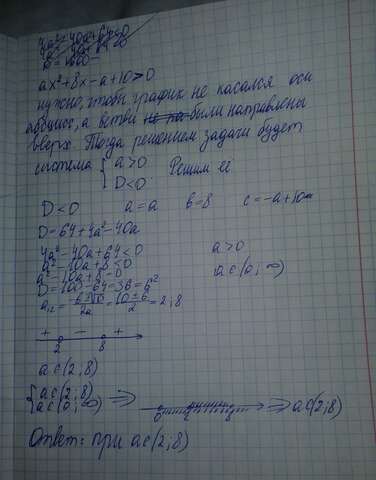 4a²-40a+64<0
D=1600-
ax²+8x-a+10>0
нужно, чтобы график не касался оси
абсцисс, а ветви были направлены
вверх. Тогда решением задачи будет
система { a>0 Решим её
D<0
D<0 a=a b=8 c=-a+10
D=64+4a²-40a
4a²-40a+64<0 a>0
a²-10a+8<0 a∈(0;∞)
a²-10a+8=0
D=100-64=36=6²
a₁,₂= = 10±6/2 =2;8
+ - +
2 8
a∈(2;8)
{ a∈(2;8)
a∈(0;∞) => => a∈(2;8)
Ответ: при a∈(2;8)